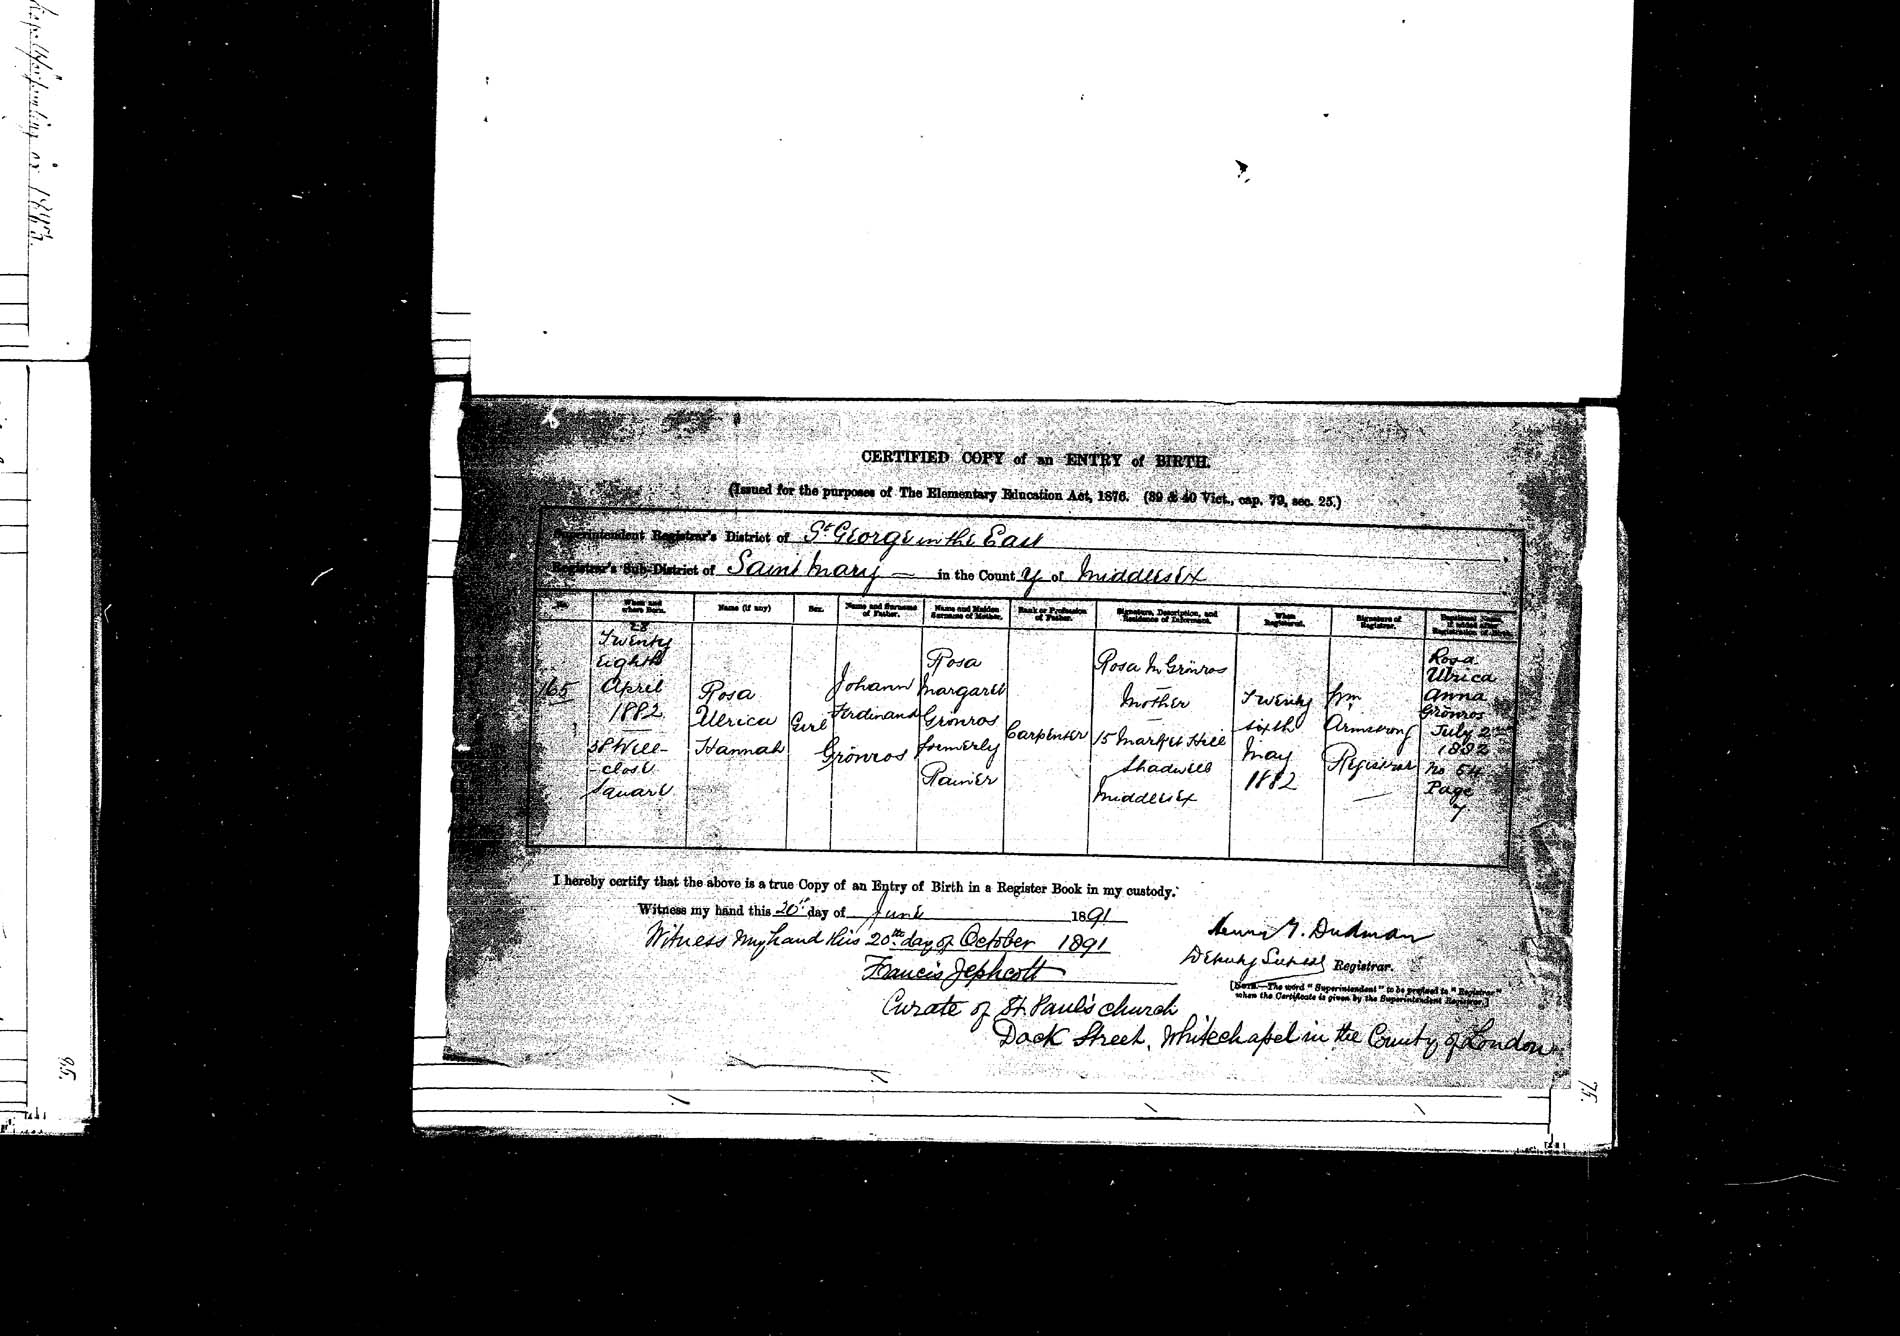 CERTIFIED COPY of an ENTRY of BIRTH.
(Issued for the purposes of The Elementary Education Act, 1876. (39 & 40 Vict., cap. 79, sec. 25.)
Superintendent Registrar's District of St George in the East
Registrar's Sub-District of Saint Mary — in the County of Middlesex
No.
When and where Born.
Name (if any)
Sex.
Name and Surname of Father.
Name and Maiden Surname of Mother.
Rank or Profession of Father.
Signature, Description, and Residence of Informant.
When Registered.
Signature of Registrar.
Baptismal Name, if added after Registration of Birth.
165
28
Twenty
eighth
April
1882
Well-
close
Square
Rosa
Ulrica
Hannah
Girl
Johann
Ferdinand
Grönros
Rosa
Margaret
Grönros
formerly
Rainer
Carpenter
Rosa M Grönros
Mother
15 Market Hill
Shadwell
Middlesex
Twenty
sixth
May
1882
Wm
Armstrong
Registrar
Rosa
Ulrica
Anna
Grönros
July 2nd
1882
No 54
Page
7
I hereby certify that the above is a true Copy of an Entry of Birth in a Register Book in my custody.
Witness my hand this 20th day of June 1891
Witness my hand this 20th day of October 1891
Francis Jephcott
Curate of St. Paul's church
Dock Street, Whitechapel in the County of London
Dudman
Deputy Supt Registrar.
[NOTE.—The word "Superintendent" to be prefixed to "Registrar"
when the Certificate is given by the Superintendent Registrar.]
75.
95.